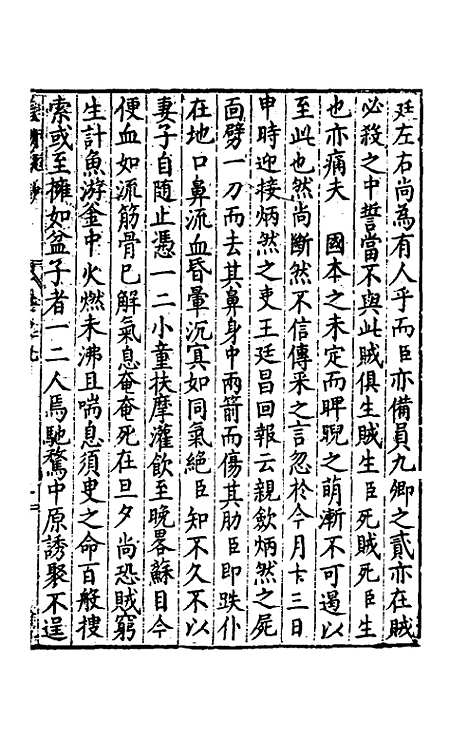 廷左右尚為有人乎而臣亦備員九卿之貳亦在賊
必殺之中誓當不與此賊俱生賊生臣死賊死臣生
也亦痛夫　國本之未定而睥睨之萌漸不可遏以
至此也然尚斷然不信傳采之言忽於今月廿三日
申時迎接炳然之吏王廷昌回報云親斂炳然之屍
面劈一刀而去其鼻身中兩箭而傷其肋臣即跌仆
在地口鼻流血昏暈沉冥如同氣絕臣知不久不以
妻子自随止憑一二小童扶摩灌飲至晚畧蘇目今
便血如流筋骨已解氣息奄奄死在旦夕尚恐賊窮
生計魚游釜中火燃未沸且喘息須臾之命百般搜
索或至擁如盆子者一二人焉馳騖中原誘聚不逞